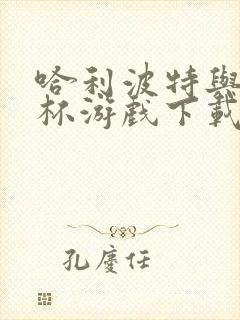 哈利波特與
杯游戲下載
孔慶任